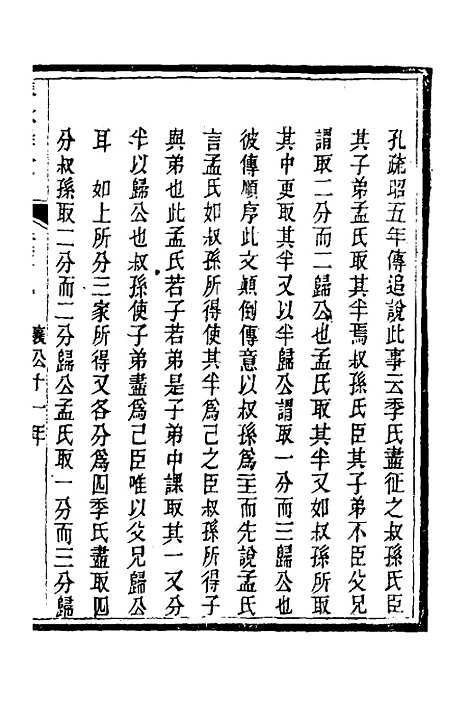 孔疏昭五年傳追說此事云季氏盡征之叔孫氏臣
其子弟孟氏取其半焉叔孫氏臣其子弟不臣父兄
謂取二分而二歸公也孟氏取其半又如叔孫所取
其中更取其半又以半歸公謂取一分而三歸公也
彼傳順序此文顛倒傳意以叔孫為主而先說孟氏
言孟氏如叔孫所得使其半為己之臣叔孫所得子
與弟也此孟氏若子若弟是子弟中課取其一又分
半以歸公也叔孫使子弟盡為己臣唯以父兄歸公
耳　如上所分三家所得又各分為四季氏盡取四
分叔孫取二分而二分歸公孟氏取一分而三分歸
襄公十一年